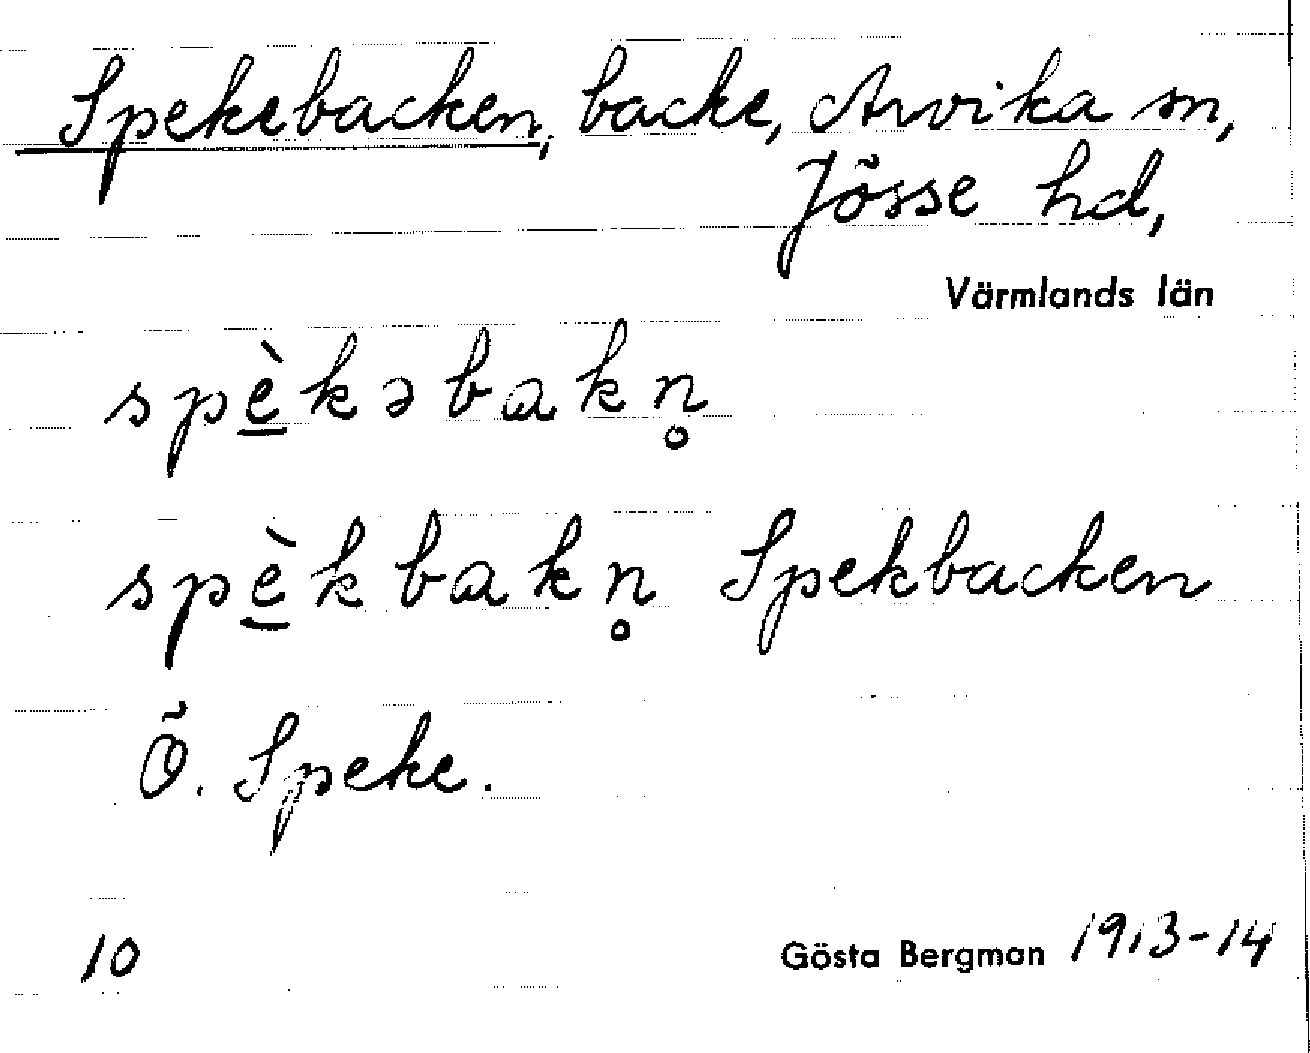 Spekebacken, backe, Arvika sn,
Jösse hd,
Värmlands län
spè̱kəbakn̥
spè̱kbakn̥ Spekbacken
Ö. Speke.
10 Gösta Bergman 1913-14